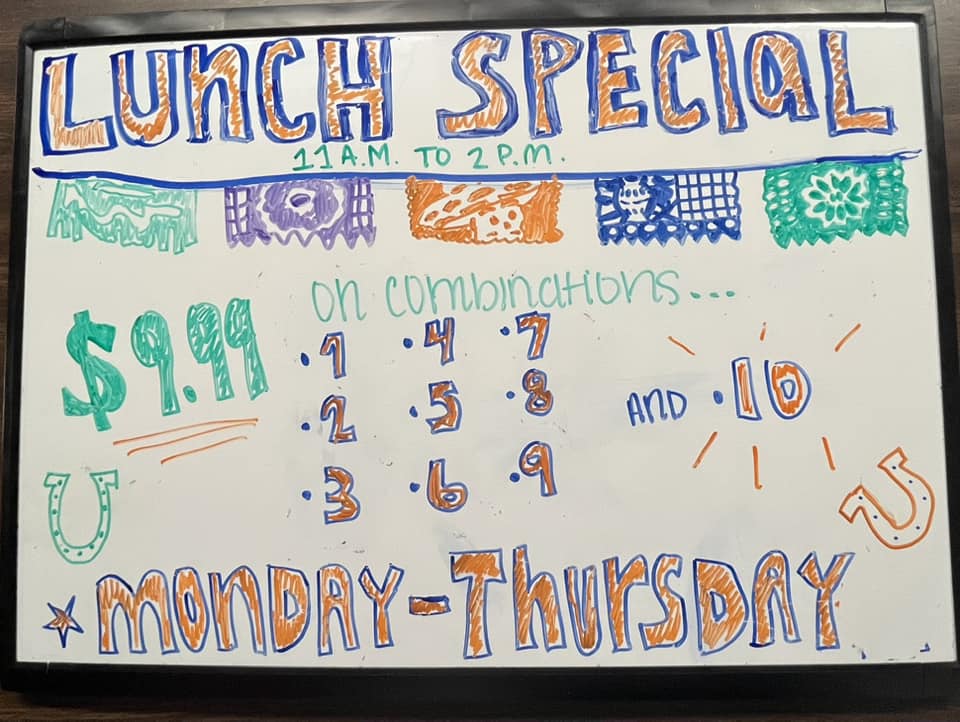 LUNCH SPECIAL
11 A.M. TO 2 P.M.
on combinations...
$9.99
•1 •4 •7
•2 •5 •8
•3 •6 •9
AND •10
MONDAY-THURSDAY